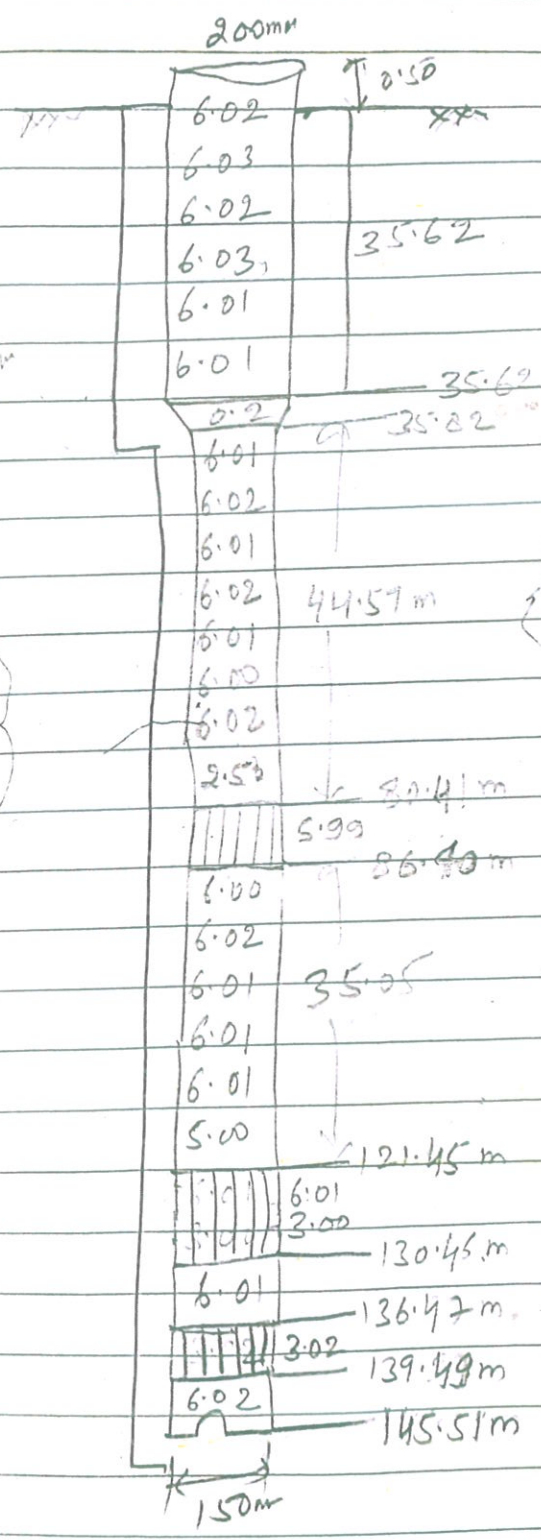 200mm
0.50
6.02
6.03
6.02
35.62
6.03
6.01
6.01
35.62
0.2
35.82
6.01
6.02
6.01
6.02
44.59 m
6.01
6.00
6.02
2.50
80.41 m
5.99
86.40 m
6.00
6.02
6.01
35.05
6.01
6.01
5.00
121.45 m
6.01
3.00
130.45 m
6.01
136.47 m
3.02
139.49 m
6.02
145.51 m
150m